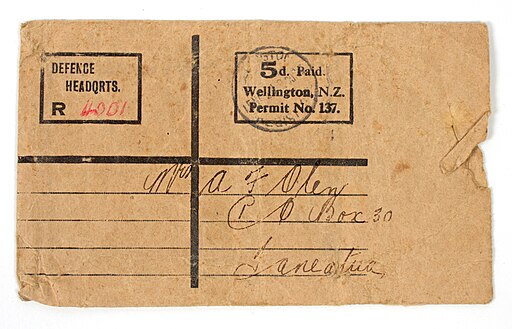 DEFENCE
HEADQRTS.
R 4001
5d. Paid.
Wellington, N.Z.
Permit No. 137.
Mrs A F
P O Box 30
Taneatua